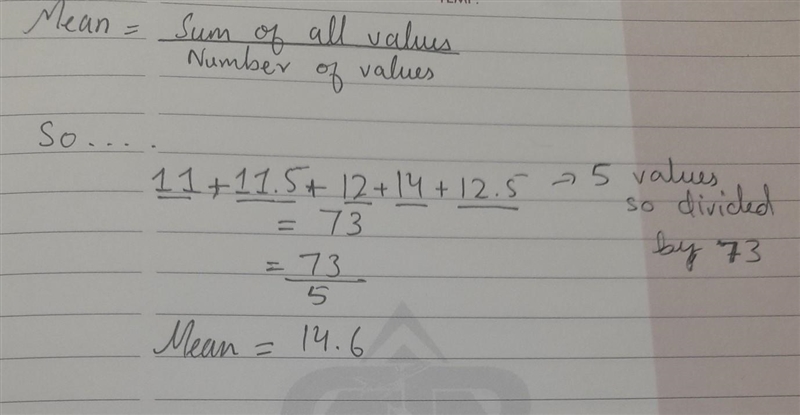 Mean = Sum of all values
Number of values
So.....
11 + 11.5 + 12 + 14 + 12.5 → 5 values
so divided
= 73
by 73
= 73
5
Mean = 14.6